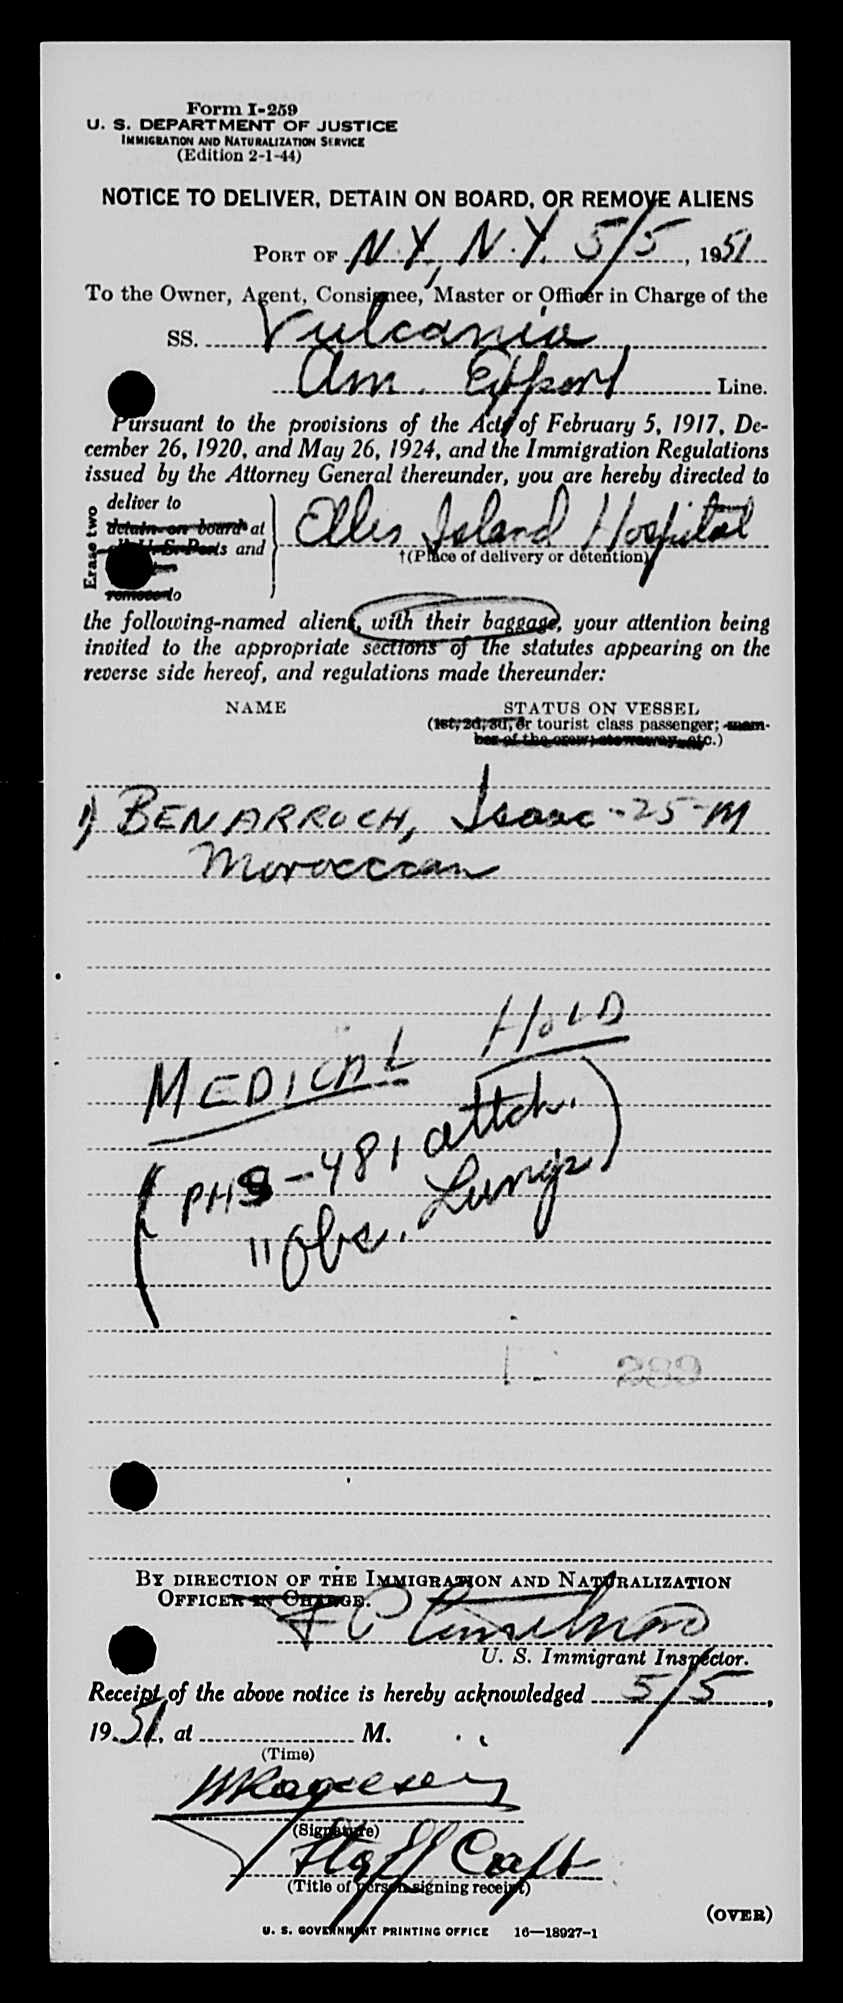 Form I-259
U. S. DEPARTMENT OF JUSTICE
IMMIGRATION AND NATURALIZATION SERVICE
(Edition 2-1-44)
NOTICE TO DELIVER, DETAIN ON BOARD, OR REMOVE ALIENS
PORT OF N.Y., N.Y. 5/5, 1951
To the Owner, Agent, Consignee, Master or Officer in Charge of the
SS. Vulcania
Am. Export Line.
Pursuant to the provisions of the Acts of February 5, 1917, De-
cember 26, 1920, and May 26, 1924, and the Immigration Regulations
issued by the Attorney General thereunder, you are hereby directed to
Erase two
deliver to
detain on board at
all U. S. Ports and
remove to
Ellis Island Hospital
†(Place of delivery or detention)
the following-named aliens, with their baggage, your attention being
invited to the appropriate sections of the statutes appearing on the
reverse side hereof, and regulations made thereunder:
NAME STATUS ON VESSEL
(1st, 2d, 3d, or tourist class passenger; mem-
ber of the crew; stowaway, etc.)
1) BENARROCH, Isaac - 25 - M
Moroccan
MEDICAL HOLD
(PHS-481 attch.
"Obs. Lungs)
289
BY DIRECTION OF THE IMMIGRATION AND NATURALIZATION
OFFICER IN CHARGE.
U. S. Immigrant Inspector.
Receipt of the above notice is hereby acknowledged 5/5,
1951, at M.
(Time)
(Signature)
Staff Capt
(Title of person signing receipt)
(OVER)
U. S. GOVERNMENT PRINTING OFFICE 16—18927-1